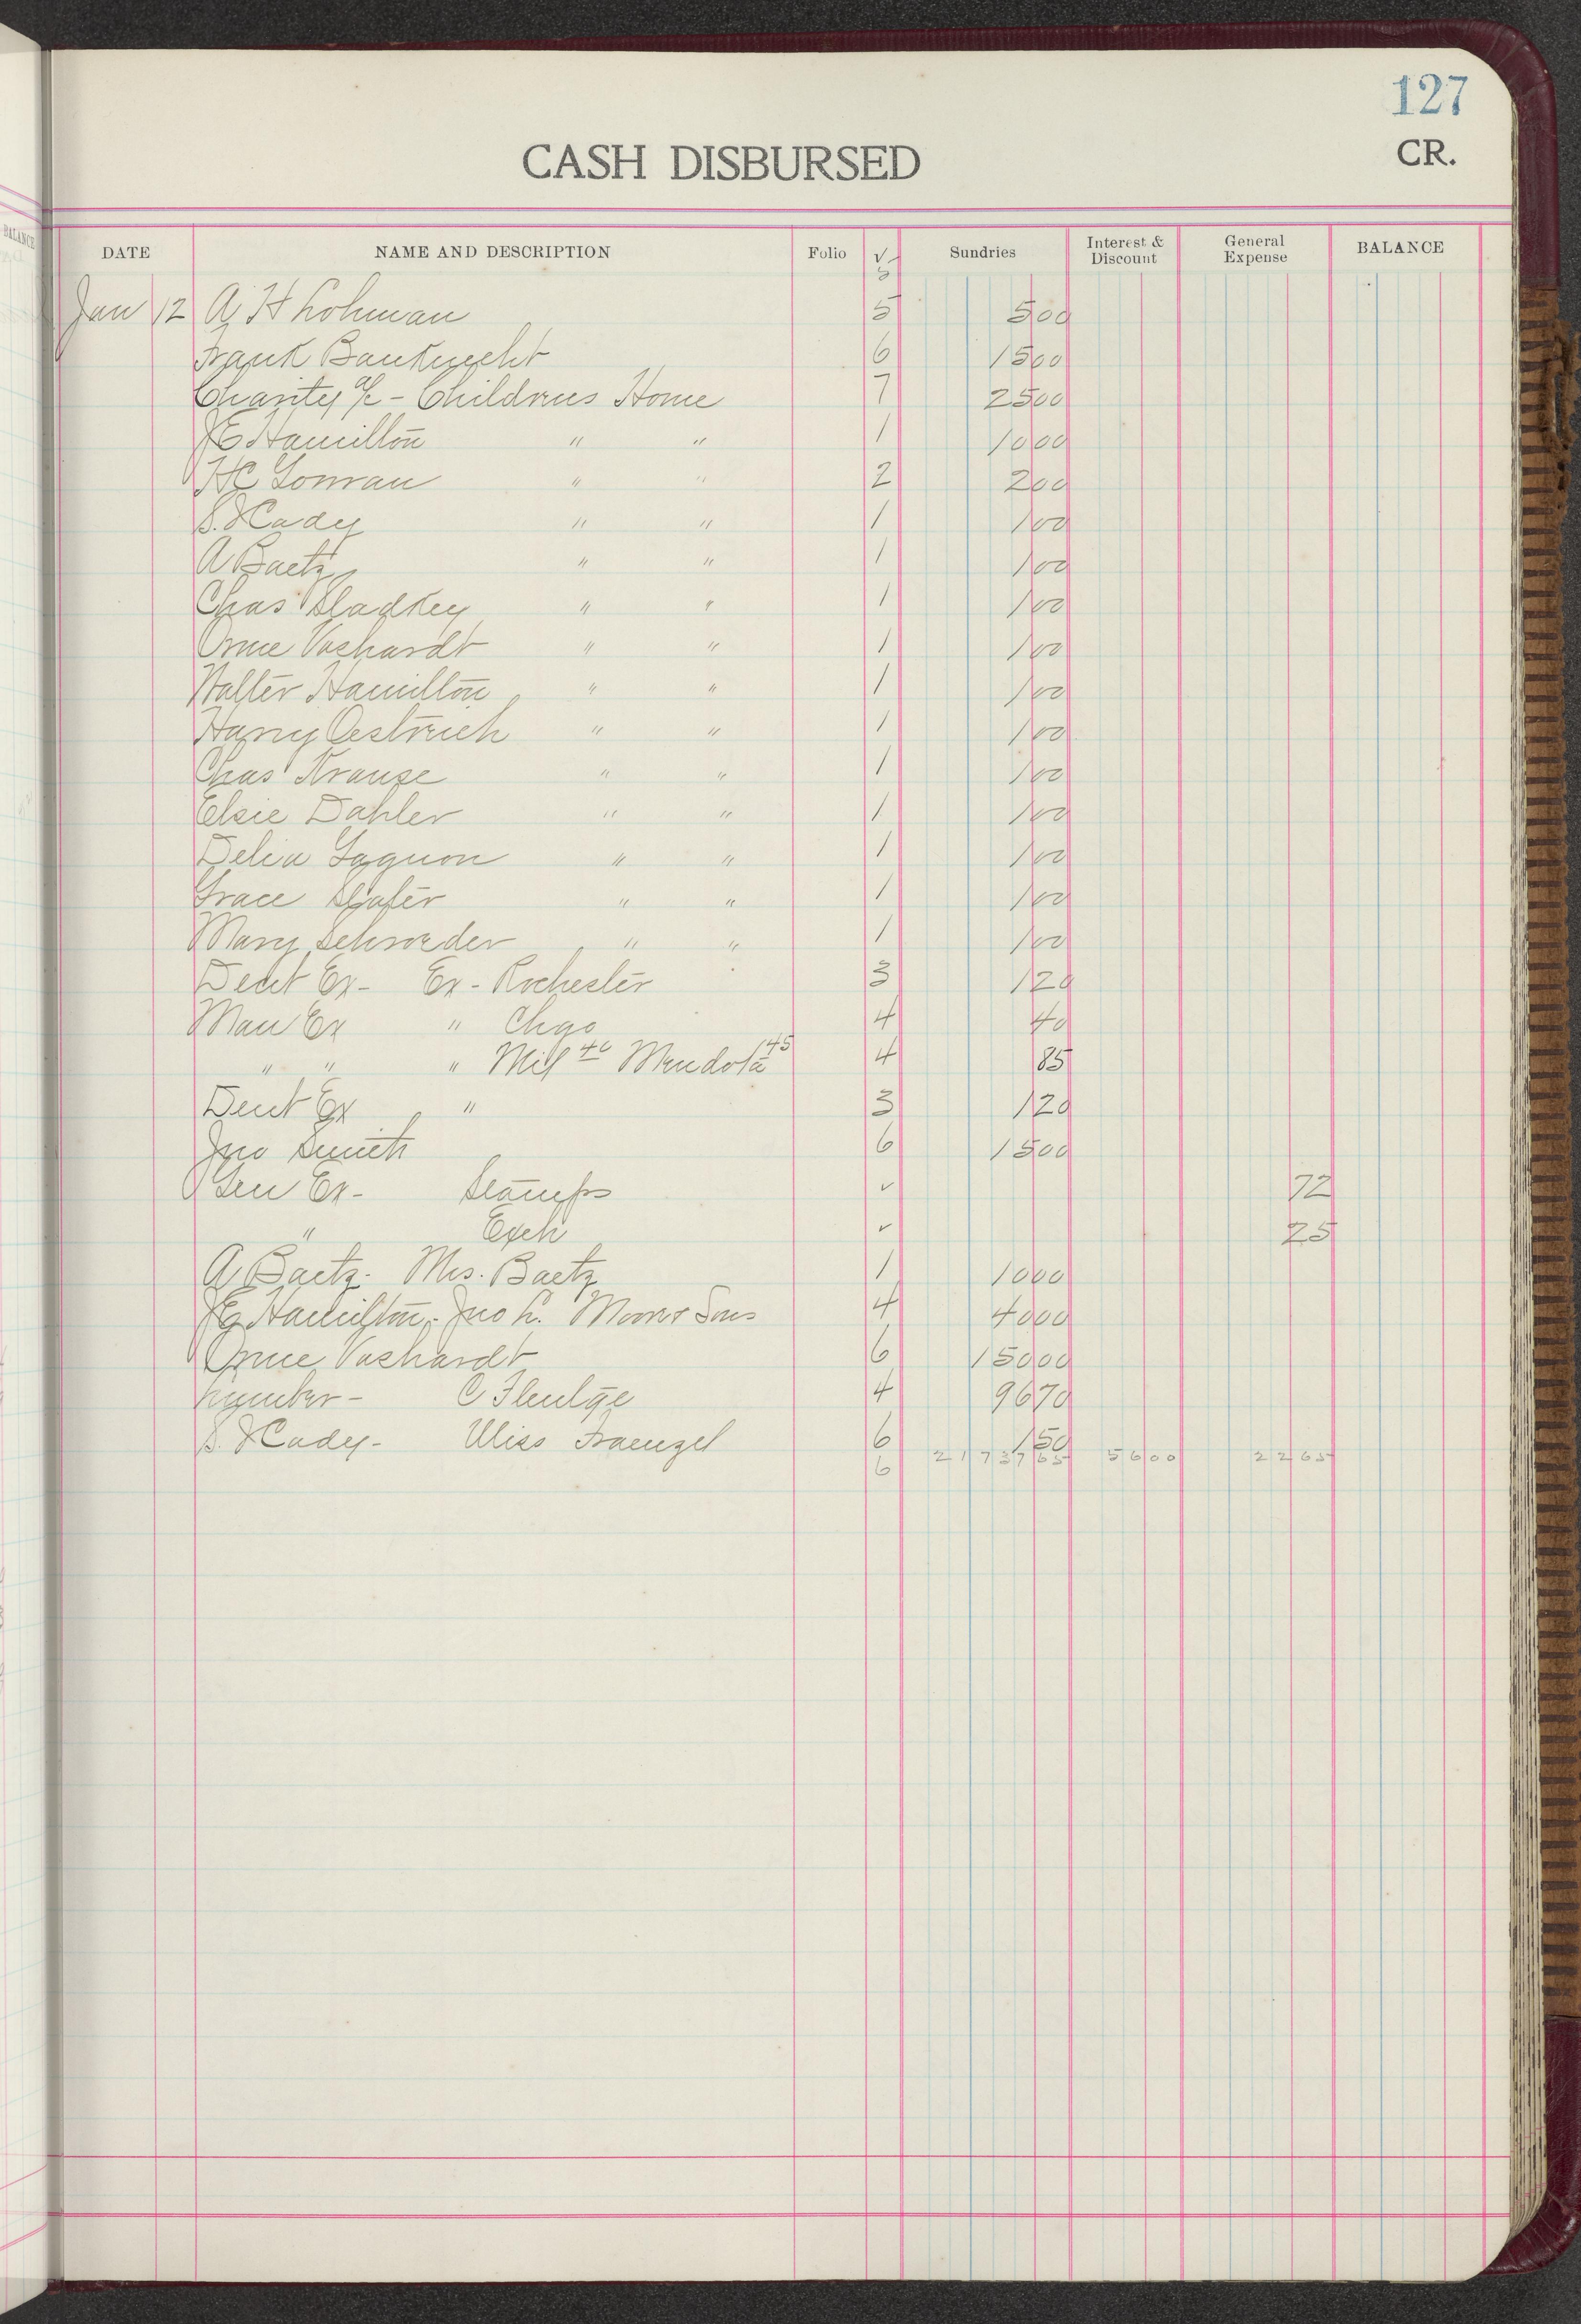 127
CASH DISBURSED CR.
BALANCE
DATE NAME AND DESCRIPTION Folio ✓ Sundries Interest & Discount General Expense BALANCE
5
Jan 12 A H Lohman 5 5 00
Frank Bauknecht 6 15 00
Charity a/c - Childrens Home 7 25 00
J E Hamilton " " 1 10 00
H C Gowran " " 2 2 00
S. J Cady " " 1 1 00
A Baetz " " 1 1 00
Chas Sladkey " " 1 1 00
Orme Voshardt " " 1 1 00
Walter Hamilton " " 1 1 00
Harry Oestrich " " 1 1 00
Chas Krause " " 1 1 00
Elsie Dahler " " 1 1 00
Delia Gagnon " " 1 1 00
Grace Slater " " 1 1 00
Mary Schroeder " " 1 1 00
Dent Ex - Ex - Rochester 3 1 20
Man Ex " Chgo 4 40
" " " Mil 40 Mendota 45 4 85
Dent Ex " 3 1 20
Jno Smith 6 15 00
Gen Ex - Stamps ✓ 72
" Exch ✓ 25
A Baetz - Mrs. Baetz 1 10 00
J E Hamilton - Jno L. Moore & Sons 4 40 00
Orme Voshardt 6 150 00
Lumber - C 4 96 70
S. J Cady - Miss Fraenzel 6 1 50
6 21737 65 56 00 22 65